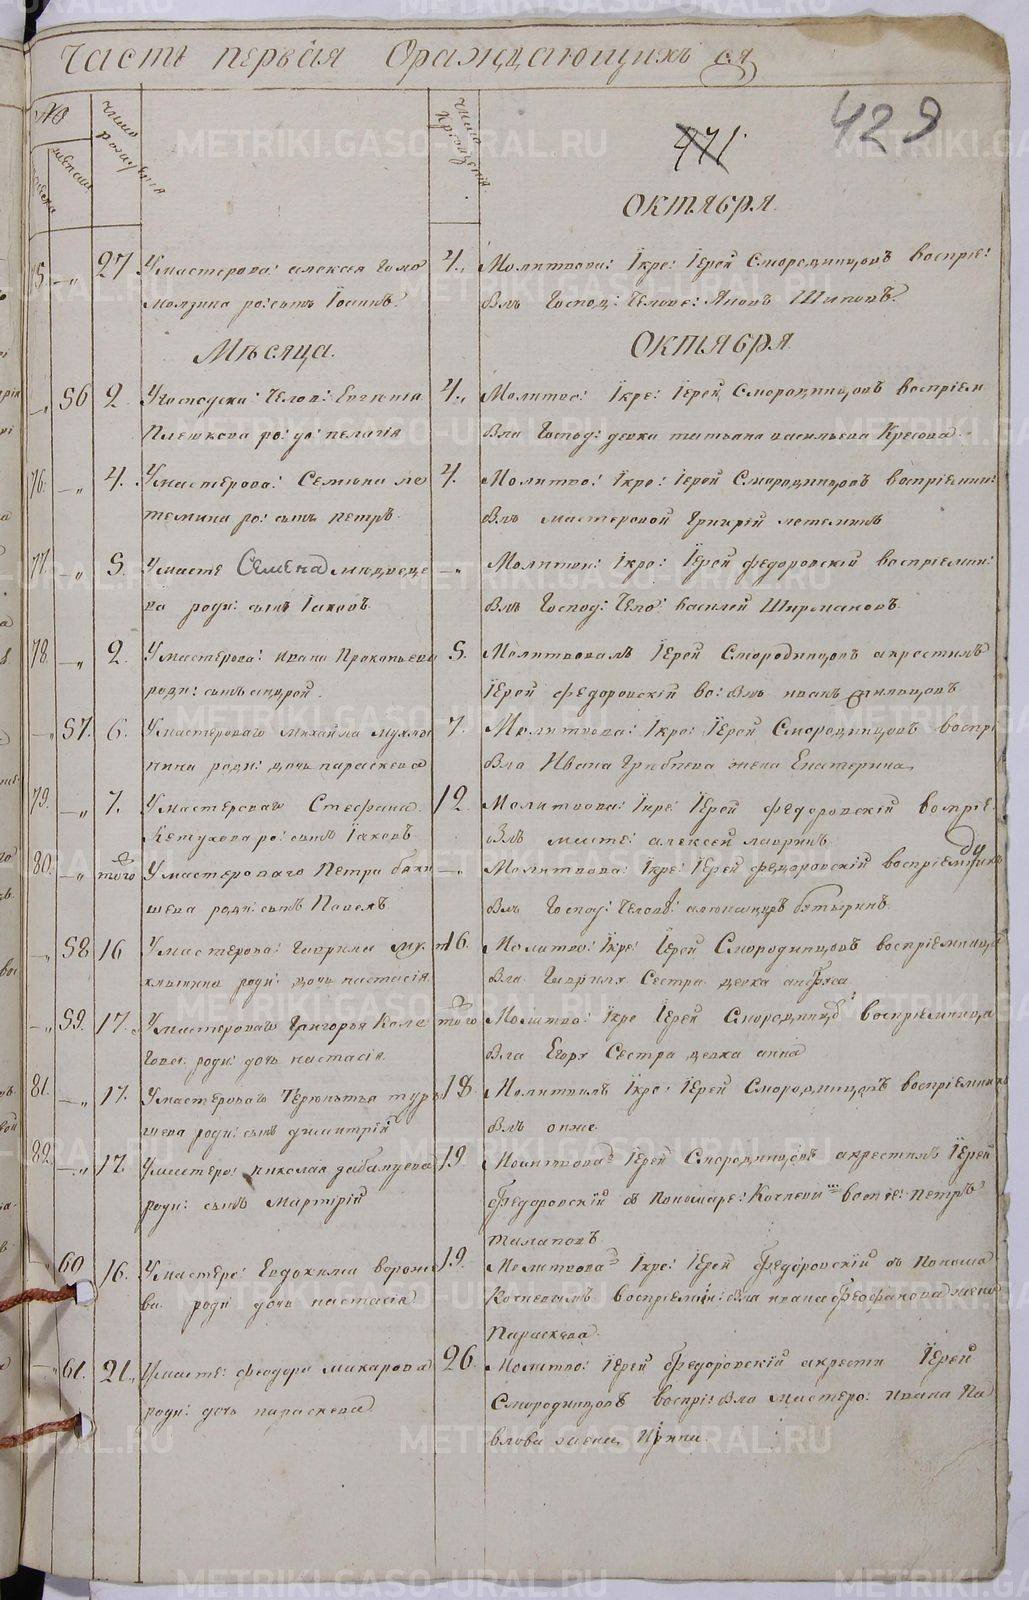 Часть первая Ораждающихъ ся
№
число рождения
число крещения
429
471.
Октября
75. 27 Умастерова: алексея
родi: сынъ Iоаннъ.
4. Молитвова: Iкре: Iерей Смородинцовъ воспрiе:
Влъ Господ: Челове: Яковъ Шиповъ.
Мѣсяца.
Октября
56 2 Угосподска: Челов: Евгения
Плешкова ро: до: пелагiя
4. Молитво: Iкре: Iерей Смородинцовъ воспрiем
Вла Господ: девка татьяна васильева
76. 4. Умастерова: Семиона ле
темина ро: сынъ петръ.
4. Молитво: Iкре: Iерей Смородинцовъ воспрiемни:
Влъ мастеровой Григорiй летеминъ
77. 5. Умасте Семена медведе
ва роди: сынъ Iаковъ
Молитво: Iкре: Iерей федоровскiй воспрiемни:
Влъ Господ: Чело: василей Ширмановъ.
78. 2. Умастерова: ивана Прокопьева
роди: сынъ андрей.
5. Молитвовалъ Iерей Смородинцовъ акрестилъ
Iерей федоровскiй во: Влъ иванъ
57. 6. Умастероваго Михайла мухлы
нина роди: дочь параскева
7. Молитвова: Iкре: Iерей Смородинцовъ воспрi
Вла Ивана жена Екатерина
79. 7. Умастероваго Стефана
Кетухова ро: сынъ Iаковъ.
12 Молитвова: Iкре: Iерей федоровскiй воспрiе
Влъ масте: алексей лавринъ.
80. того Умастероваго Петра
шева роди: сынъ Павелъ.
Молитвова: Iкре: Iерей федоровскiй воспрiемникъ
Влъ Господ: Челов: батыринъ.
58 16 Умастерова: Гаврила мух
лынина роди: дочь настасiя
16. Молитво: Iкре: Iерей Смородинцовъ воспрiемница
Вла Гаврила Сестра девка анфиса
59. 17. Умастероваго Григорья Кале
гова. роди: дочь настасiя
того Молитво: Iкре Iерей Смородинцов: воспрiемница
Вла Егора Сестра девка анна
81. 17. Умастероваго Терентья туры
шева роди: сынъ димитрiй
18. Молитвилъ Iкре: Iерей Смородинцовъ воспрiемникъ
Влъ онже.
82. 17 Умастеро: николая
роди: сынъ Мартирiй
19. Молитвова Iерей Смородинцовъ акрестилъ Iерей
федоровскiй въ Пономаре: воспрiе: Петръ
талановъ
60 16. Умастере: Евдокима вороно
ва роди дочь настасiя
19. Молитвова Iкре: Iерей федоровскiй въ Понома
Кочневымъ воспрiемни: Вла ивана феофанова жена
Параскева.
61. 21. Умасте: феодора макарова
роди: дочь параскева
26. Молитво: Iерей федоровскiй акрести Iерей
Смородинцовъ воспрi: Вла мастеро: ивана Па
влова жена Ирина.
METRIKI.GASO-URAL.RU